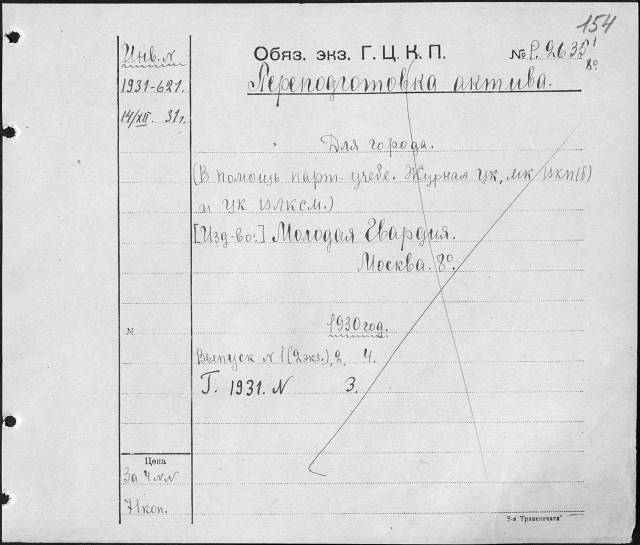 154
Инв. N
1931-621.
14/XII. 31 г.
Обяз. экз. Г. Ц. К. П. № Р. 2635¹
8°
Переподготовка актива.
Для города.
(В помощь парт-учебе. Журнал ЦК, МК ВКП(б)
и ЦК ВЛКСМ.)
[Изд-во:] Молодая Гвардия.
Москва. 8°.
N
1930 год.
Выпуск N 1 (2 экз.), 2, 4.
Г. 1931. N 3.
Цена
За 4 NN
71 коп.
5-я Транспечати